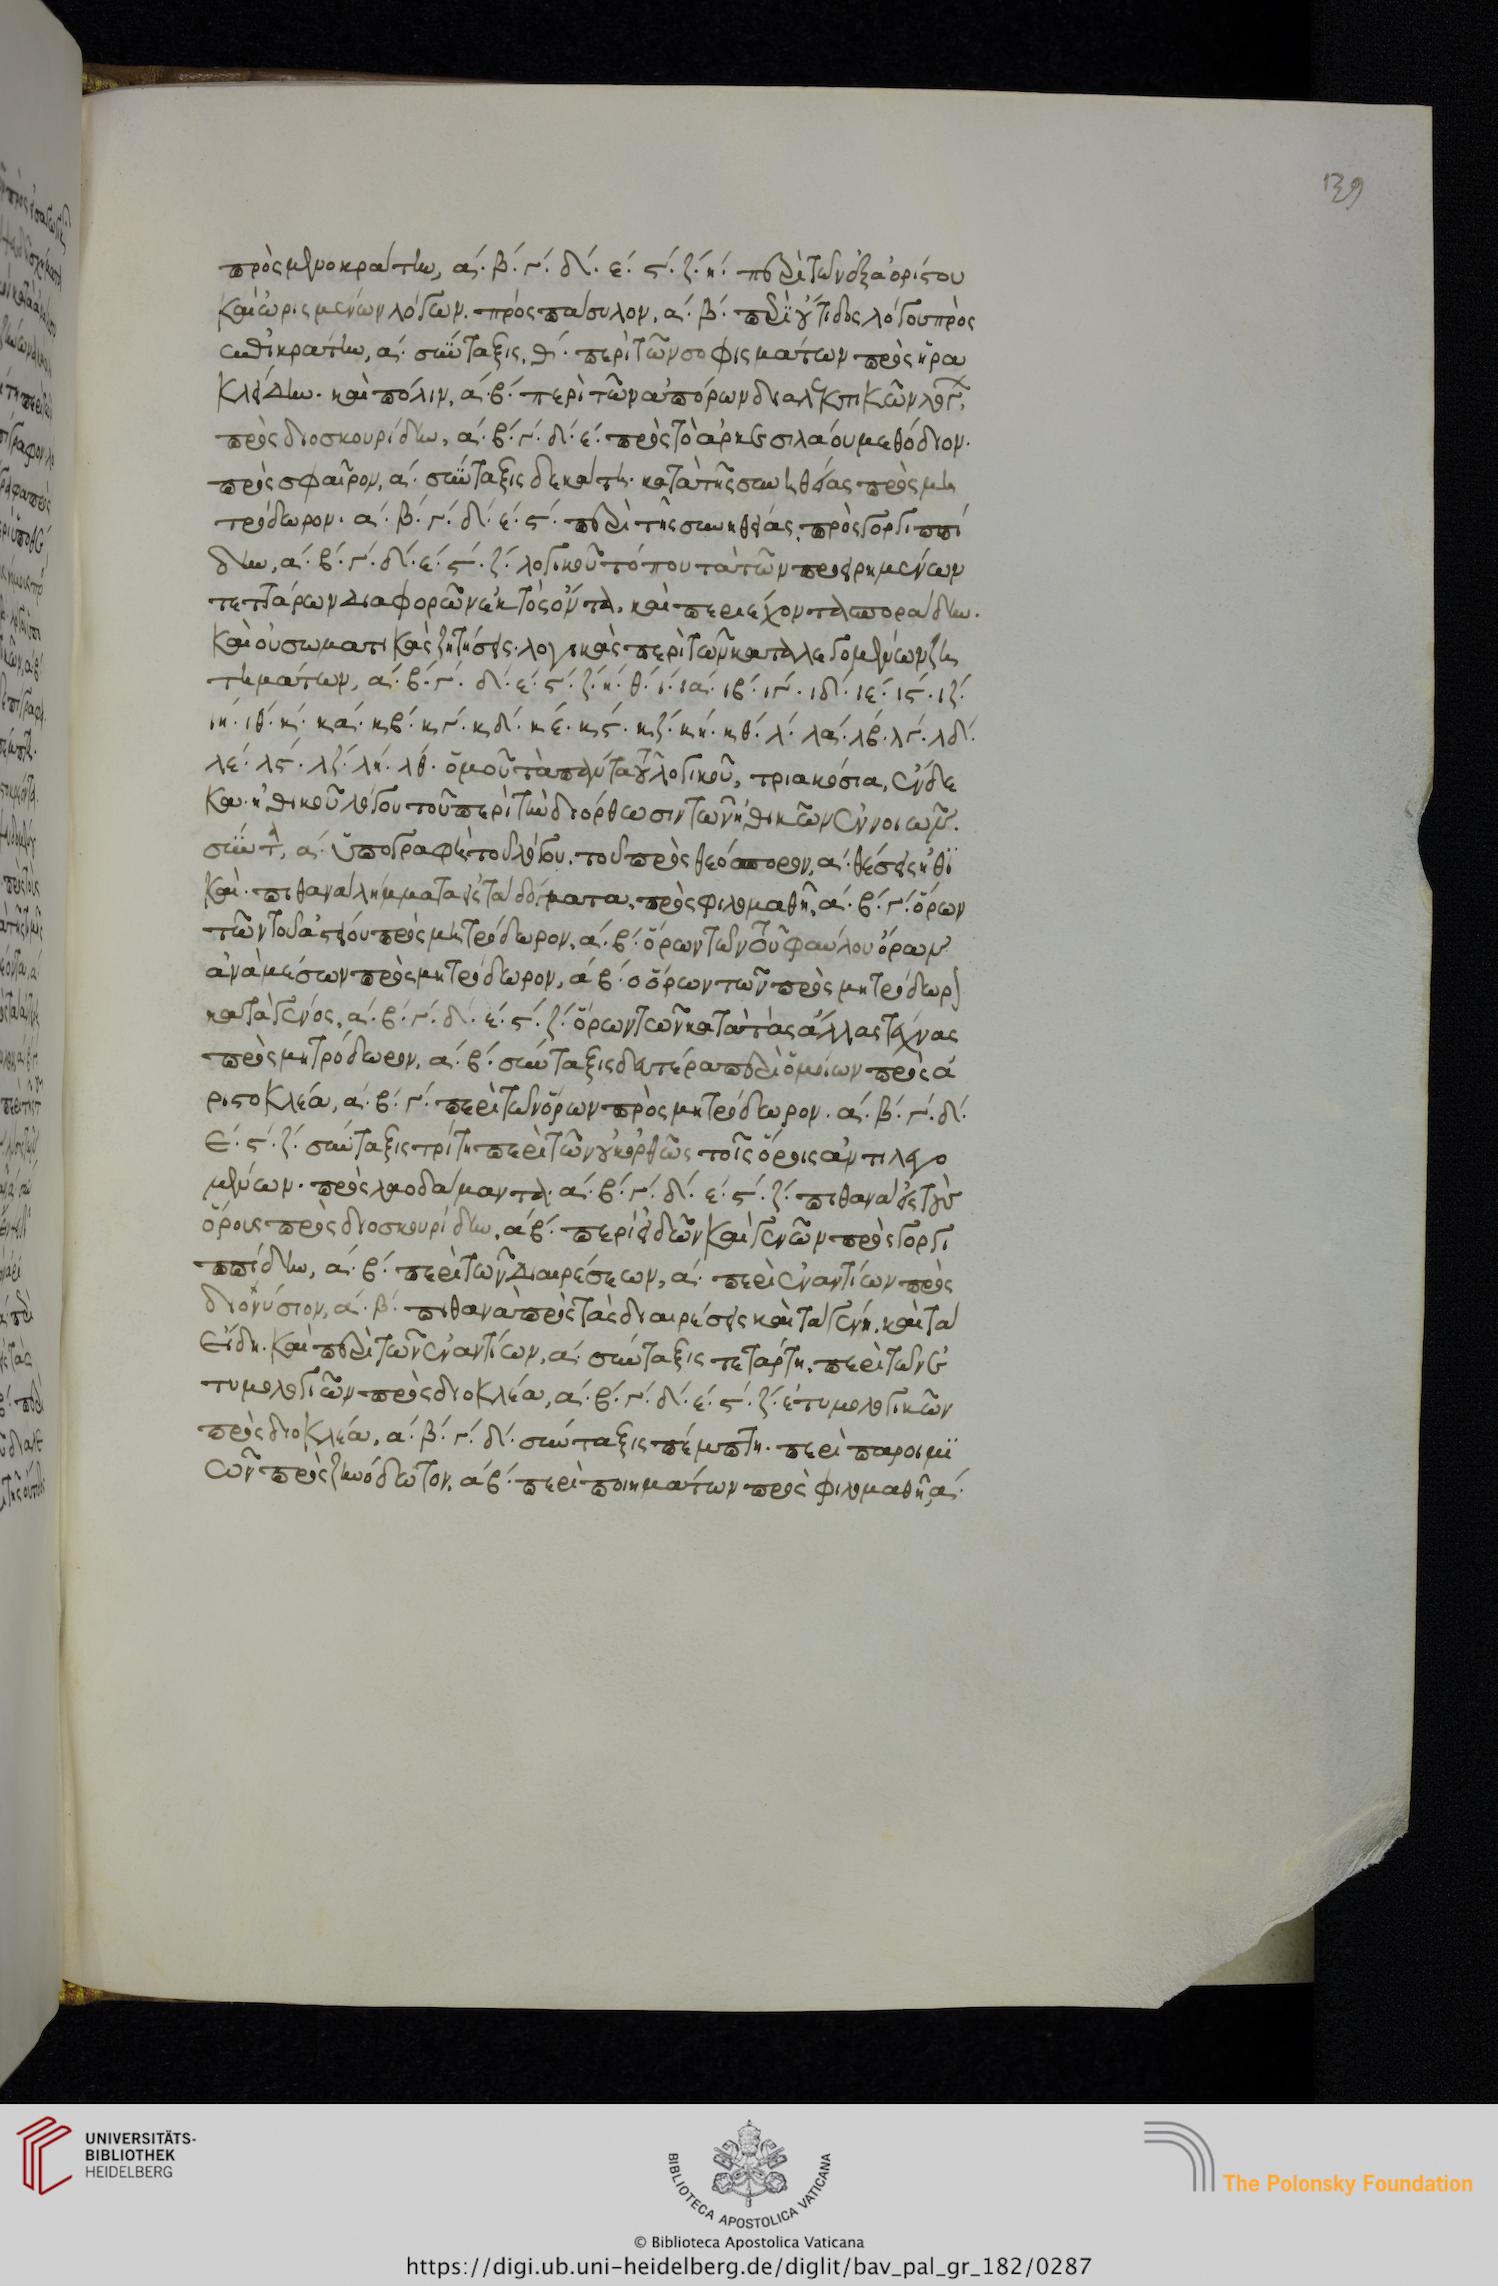 139
πρὸς μενοκράτην, α΄. β΄. γ΄. δ΄. ε΄. ς΄. ζ΄. η΄. περὶ τῶν ἐξ ἀορίστου
καὶ ὡρισμένων λόγων. πρὸς πάσυλον, α΄. β΄. περὶ οὔτιδος λόγου πρὸς
ἐπικράτην, α΄. σύνταξις, θ΄. περὶ τῶν σοφισμάτων πρὸς ἡρα
κλείδην. καὶ πόλιν, α΄. β΄. περὶ τῶν ἀπόρων διαλεκτικῶν
πρὸς διοσκουρίδην, α΄. β΄. γ΄. δ΄. ε΄. πρὸς τὸ ἀρκεσιλάου μεθόδιον.
πρὸς σφαῖρον, α΄. σύνταξις δεκάτη. κατὰ τῆς συνηθείας πρὸς μη
τρόδωρον. α΄. β΄. γ΄. δ΄. ε΄. ς΄. περὶ τῆς συνηθείας. πρὸς γοργιππί
δην, α΄. β΄. γ΄. δ΄. ε΄. ς΄. ζ΄. λογικοῦ τόπου τὰ τῶν προειρημένων
τεττάρων διαφορῶν ἐκτὸς ὄντα. καὶ περιέχοντα σποράδην.
καὶ οὐ σωματικὰς ζητήσεις. λογικὰς περὶ τῶν καταλεγομένων ζη
τημάτων, α΄. β΄. γ΄. δ΄. ε΄. ς΄. ζ΄. η΄. θ΄. ι΄. ια΄. ιβ΄. ιγ΄. ιδ΄. ιε΄. ις΄. ιζ΄.
ιη΄. ιθ΄. κ΄. κα΄. κβ΄. κγ΄. κδ΄. κε΄. κς΄. κζ΄. κη΄. κθ΄. λ΄. λα΄. λβ΄. λγ΄. λδ΄.
λε΄. λς΄. λζ΄. λη΄. λθ΄. ὁμοῦ τὰ πάντα τοῦ λογικοῦ, τριακόσια, ἕνδε
κα. ἠθικοῦ λόγου τοῦ περὶ τὴν διόρθωσιν τῶν ἠθικῶν ἐννοιῶν.
α΄. ὑπογραφὴ τοῦ λόγου. τοῦ πρὸς θεόσπορον, α΄. θέσεις ἠθι
καὶ. πιθανὰ λήμματα εἰς τὰ δόγματα. πρὸς φιλομαθῆ, α΄. β΄. γ΄. ὅρων
τῶν τοῦ ἀστείου πρὸς μητρόδωρον, α΄. β΄. ὅρων τῶν τοῦ φαύλου
ἀνὰ μέσων πρὸς μητρόδωρον, α΄ β΄. ὅρων τῶν πρὸς μητρόδωρ
κατὰ γένος, α΄. β΄. γ΄. δ΄. ε΄. ς΄. ζ΄. ὅρων τῶν κατὰ τὰς ἄλλας τέχνας
πρὸς μητρόδωρον, α΄. β΄. σύνταξις δευτέρα περὶ ὁμοίων πρὸς ἀ
ριστοκλέα, α΄. β΄. γ΄. περὶ τῶν ὅρων πρὸς μητρόδωρον. α΄. β΄. γ΄. δ΄.
ε΄. ς΄. ζ΄. σύνταξις τρίτη περὶ τῶν οὐκ ὀρθῶς τοῖς ὅροις ἀντιλεγο
μένων. πρὸς λαοδάμαντα. α΄. β΄. γ΄. δ΄. ε΄. ς΄. ζ΄. πιθανὰ εἰς τοὺς
ὅρους πρὸς διοσκουρίδην, α΄ β΄. περὶ εἰδῶν καὶ γενῶν πρὸς γοργι
ππίδην, α΄. β΄. περὶ τῶν διαιρέσεων, α΄. περὶ ἐναντίων πρὸς
διονύσιον, α΄. β΄. πιθανὰ πρὸς τὰς διαιρέσεις καὶ τὰ γένη. καὶ τὰ
εἴδη. καὶ περὶ τῶν ἐναντίων, α΄. σύνταξις τετάρτη. περὶ τῶν ἐ
τυμολογιῶν πρὸς διοκλέα, α΄. β΄. γ΄. δ΄. ε΄. ς΄. ζ΄. ἐτυμολογικῶν
πρὸς διοκλέα, α΄. β΄. γ΄. δ΄. σύνταξις πέμπτη. περὶ παροιμι
ῶν πρὸς ζηνόδωτον, α΄ β΄. περὶ ποιημάτων πρὸς φιλομαθῆ, α΄.
UNIVERSITÄTS-
BIBLIOTHEK
HEIDELBERG
BIBLIOTECA APOSTOLICA VATICANA
The Polonsky Foundation
© Biblioteca Apostolica Vaticana
https://digi.ub.uni-heidelberg.de/diglit/bav_pal_gr_182/0287